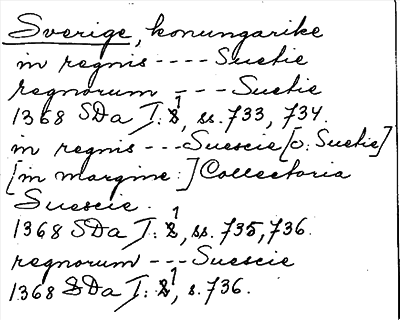 Sverige, konungarike
in regnis ---- Suetie
regnorum --- Suetie
1368 SDa I: 1, ss. 733, 734.
in regnis --- Suescie [o: Suetie]
[in margine:] Collectoria
Suescie.
1368 SDa I: 1, ss. 735, 736.
regnorum --- Suescie
1368 SDa I: 1, s. 736.